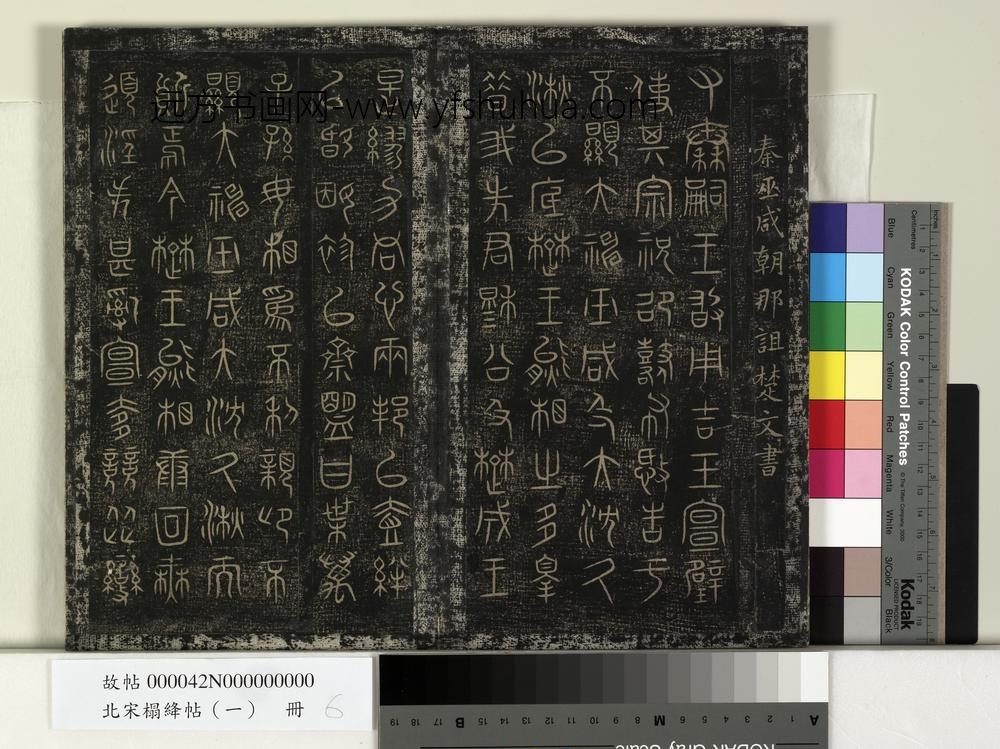 秦巫咸朝那詛楚文書
又秦嗣王敢用吉玉宣璧
使其宗祝邵鼛布憝告于
不顯大神巫咸及大沈久
湫以底楚王熊相之多辠
昔我先君穆公及楚成王
是繆力同心兩邦以壹絆
以婚姻袗以齋盟曰枼萬
子孫毋相為不利親卬不
顯大神巫咸大沈久湫而
質焉今楚王熊相康回無
道淫失甚亂宣奓競從變
远方书画网-www.yfshuhua.com
故帖 000042N000000000
北宋榻絳帖（一） 冊 6
KODAK Color Control Patches
© The Tiffen Company, 2000
Kodak
LICENSED PRODUCT
Inches
Centimetres
Blue
Cyan
Green
Yellow
Red
Magenta
White
3/Color
Black
A 1 2 3 4 5 6 M 8 9 10 11 12 13 14 15 B 17 18 19